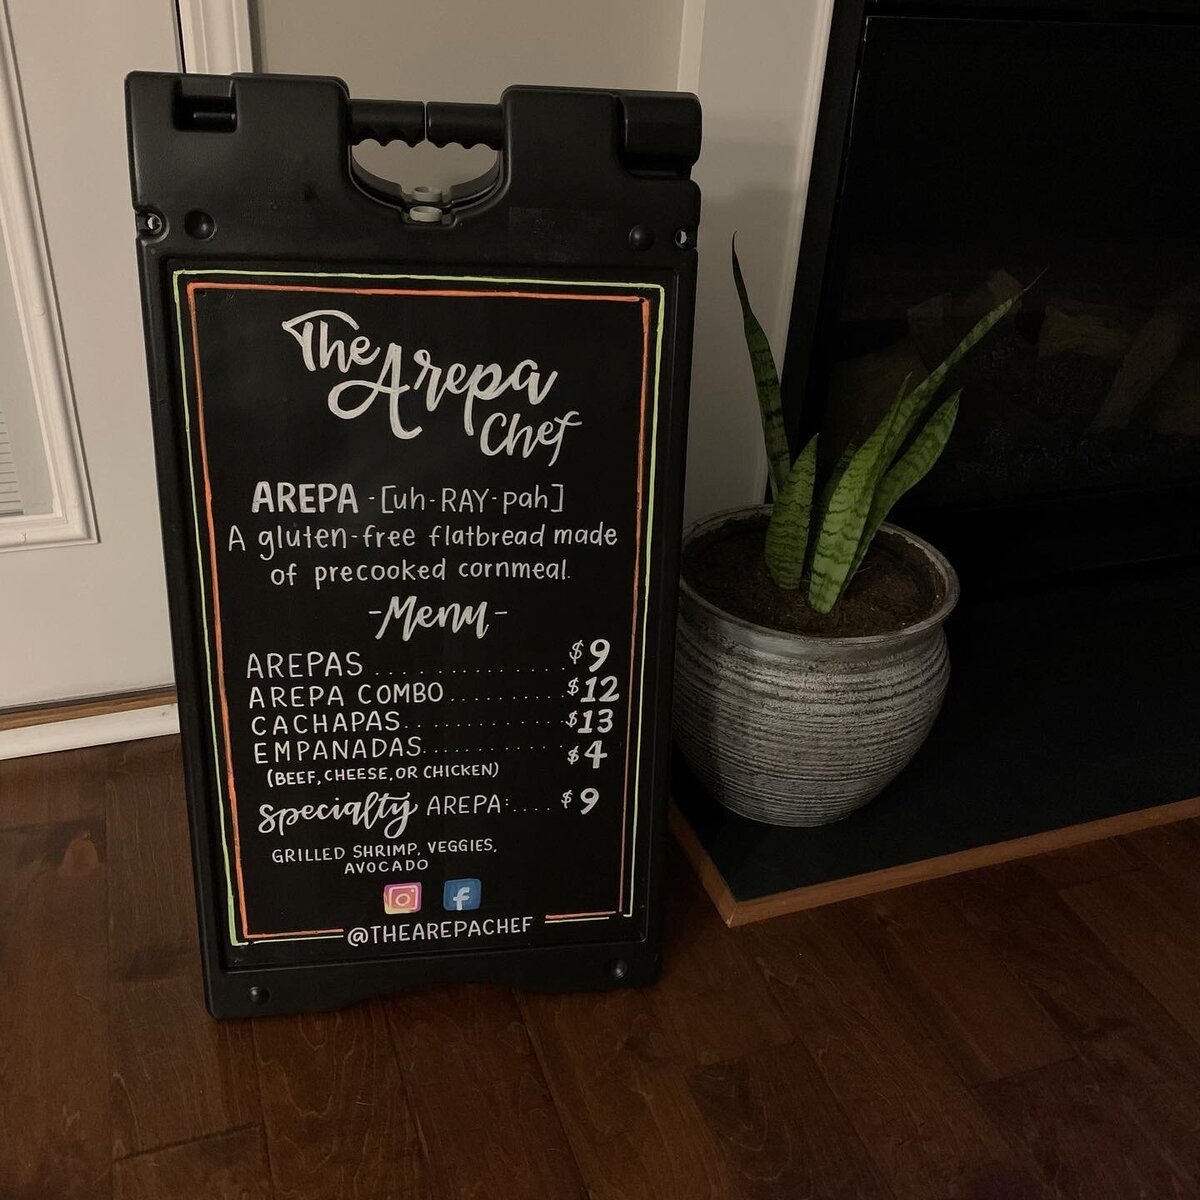 The
Arepa
Chef
AREPA - [uh-RAY-pah]
A gluten-free flatbread made
of precooked cornmeal.
-Menu-
AREPAS.....................$9
AREPA COMBO..........$12
CACHAPAS...............$13
EMPANADAS..............$4
(BEEF, CHEESE, OR CHICKEN)
Specialty AREPA:.... $9
GRILLED SHRIMP, VEGGIES,
AVOCADO
@THEAREPACHEF